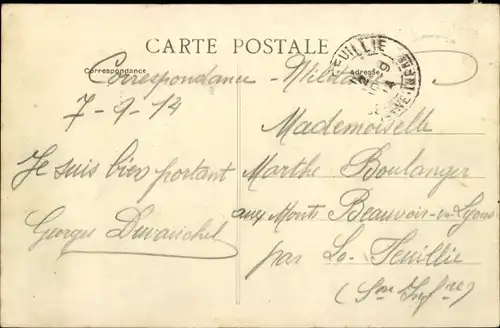 CARTE POSTALE
FEUILLIE
Correspondance
Adresse
Correspondance Militaire
7-9-14
Mademoiselle
Je suis bien portant
Marthe Boulanger
aux Monts Beauvoir-en-Lyons
Georges
par La Feuillie
(Sne Infre)